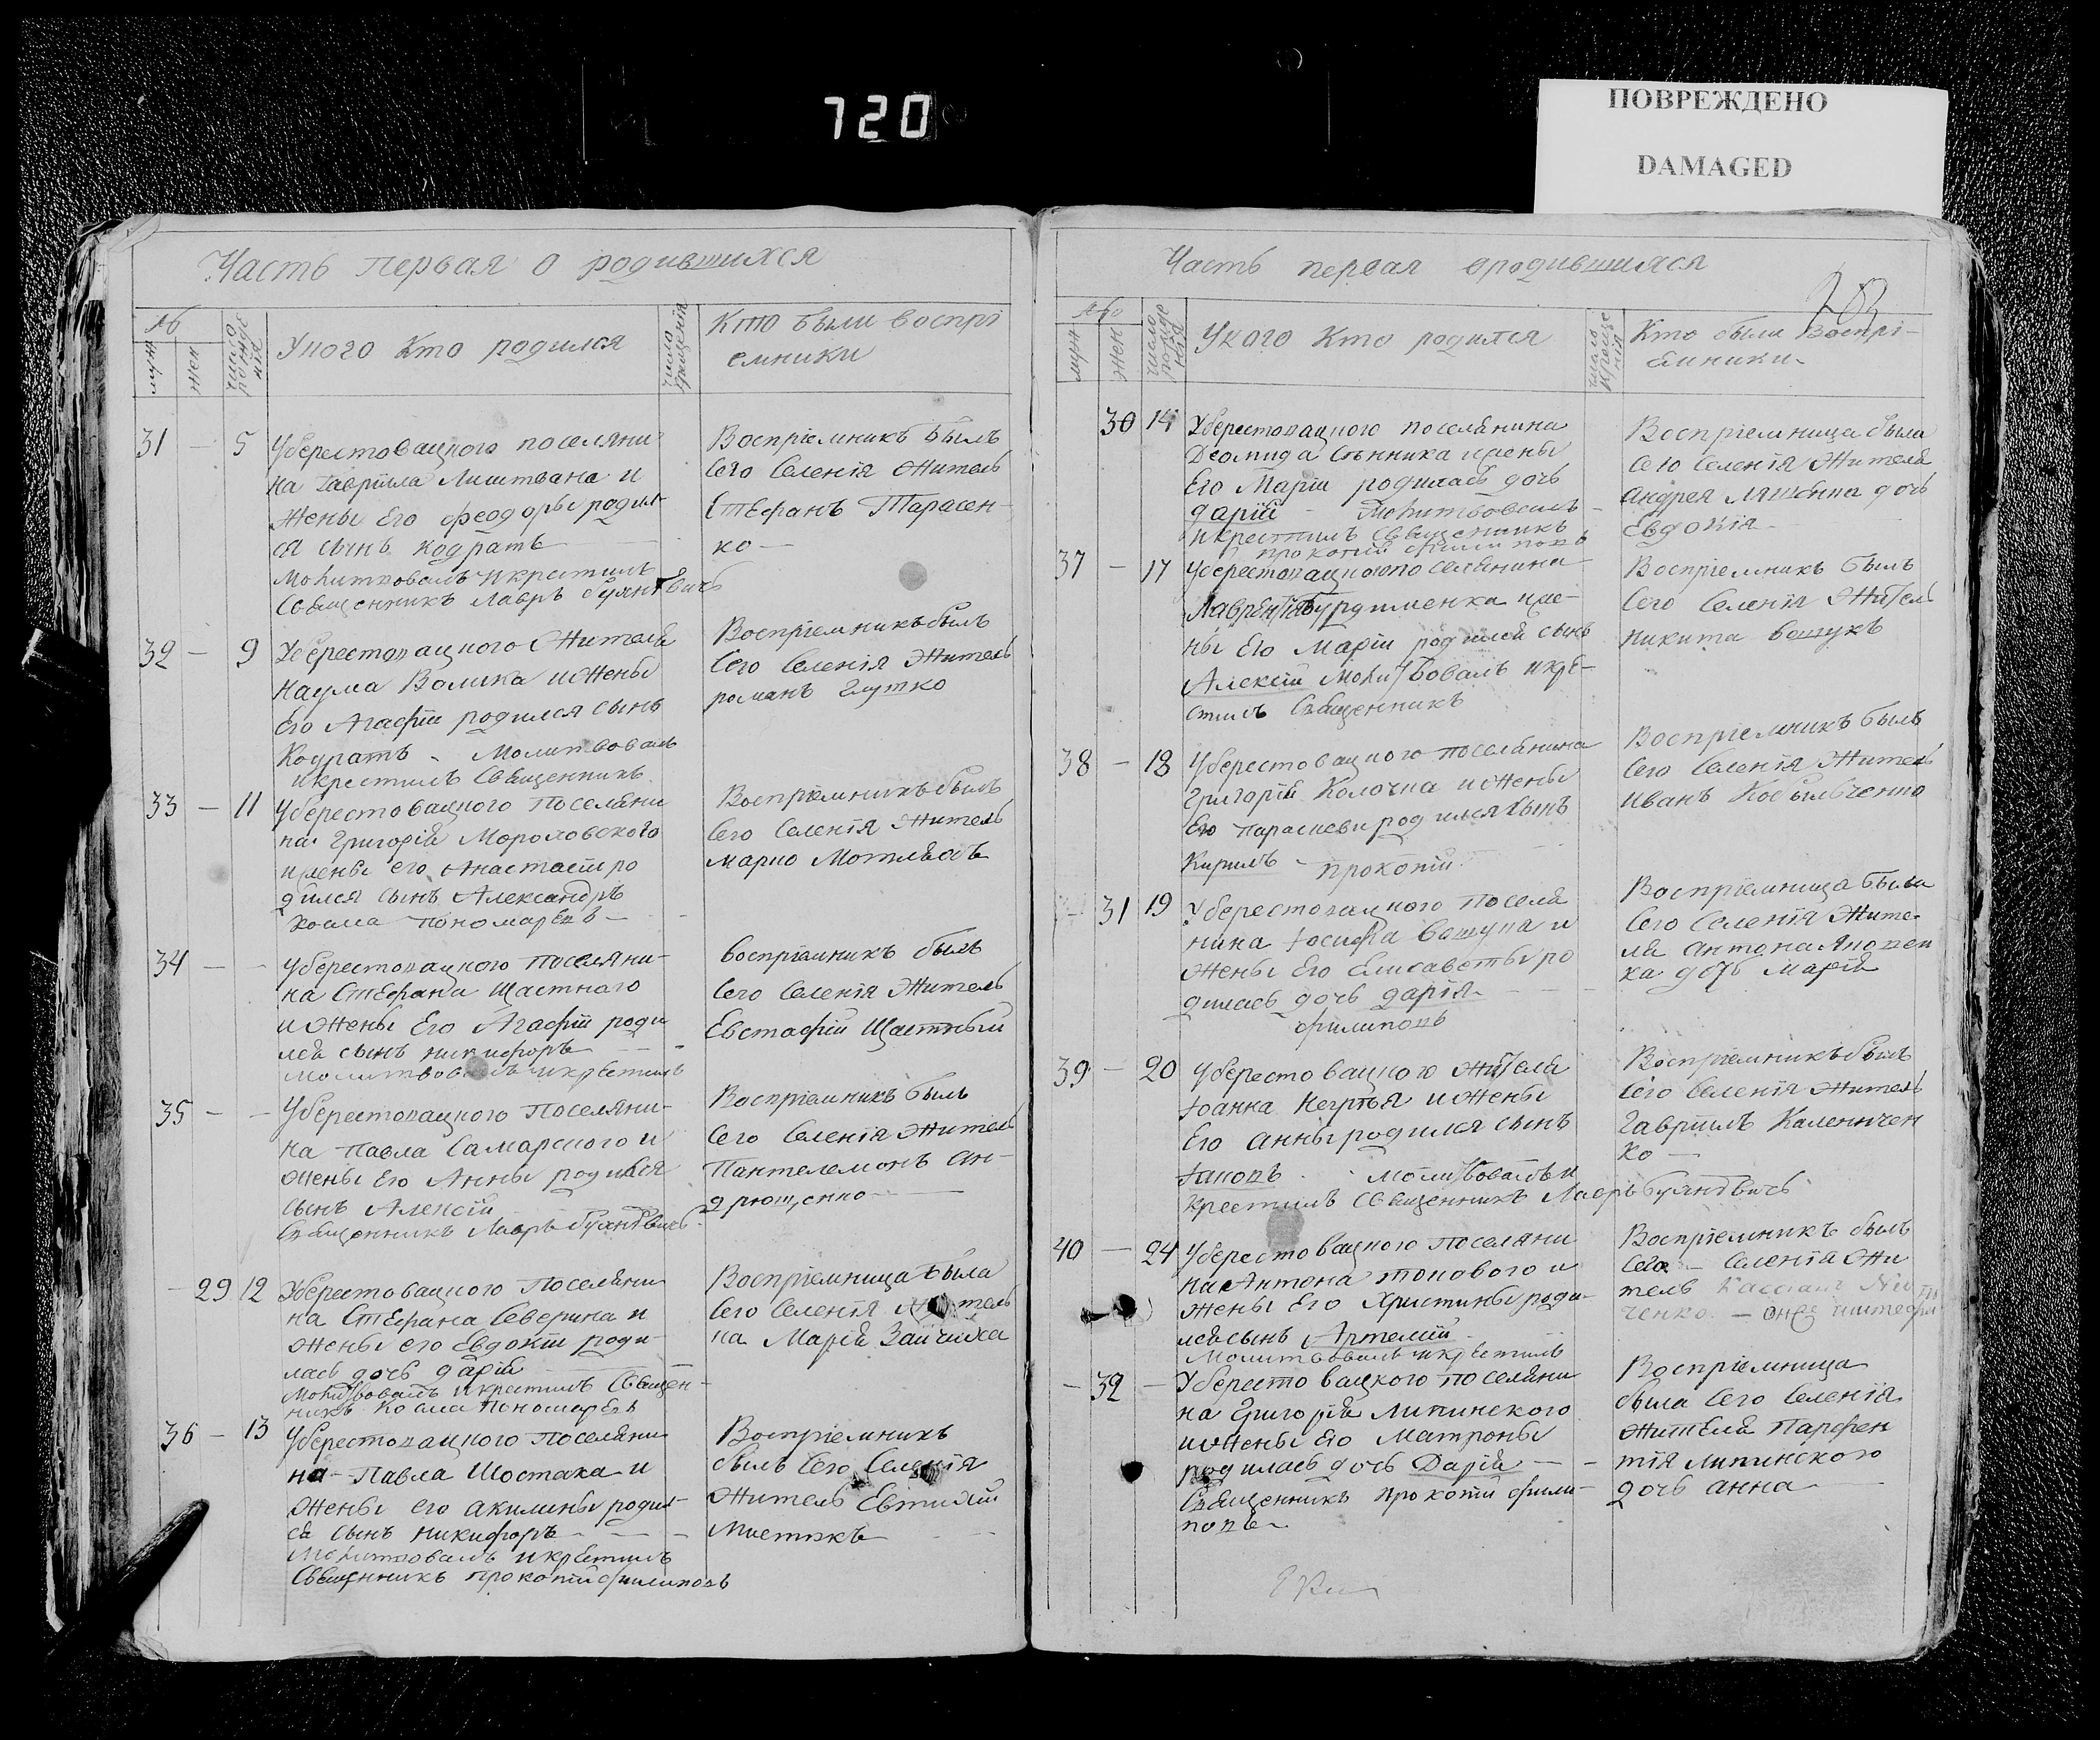 720
ПОВРЕЖДЕНО
DAMAGED
Часть первая о родившихся
№
муж
жен
число рожде нія
У кого Кто родился
число крещенія
Кто были воспрі
емники
31 — 5 Уберестовацкого поселяни
на Гавріила Лиштвана и
жены Его Феодоры родил
ся сынъ кодратъ —
Молитвовалъ и крестилъ
Священникъ Лавръ
Воспріемникъ былъ
Сего Селенія Житель
Стефанъ Тарасен-
ко —
32 — 9 Уберестовацкого Жителя
Наума Волика и Жены
Его Агафіи родился сынъ
Кодратъ - Молитвовалъ
и крестилъ Священникъ
Воспріемникъ былъ
Сего Селенія Житель
романъ Глутко
33 — 11 Уберестовацкого Поселяни
на Григорія Мороховского
и жены его Анастасіи ро
дился сынъ Александръ
Косма Пономаревъ —
Воспріемникъ былъ
Сего Селенія Житель
марко
34 — — Уберестовацкого Поселяни-
на Стефана Щастного
и Жены Его Агафіи роди
лся сынъ никифоръ —
Молитвовалъ и крестилъ
воспріемникъ былъ
Сего Селенія Житель
Евстафій Щастный
35 — — Уберестовацкого Поселяни-
на Павла Самарского и
жены Его Анны родился
сынъ Алексій
Священникъ Лавръ
Воспріемникъ былъ
Сего Селенія Житель
Пантелемонъ Ан-
дрющенко —
— 29 12 Уберестовацкого Поселяни
на Стефана Северина и
жены его Евдокіи роди-
лась дочь дарія
Молитвовалъ и крестилъ Священ-
никъ Косма Пономаревъ
Воспріемница была
Сего Селенія
на Марія Зайчиха
36 — 13 Уберестовацкого Поселяни
на Павла Шостака и
жены его акилины родил-
ся сынъ никифоръ —
Молитвовалъ и крестилъ
Священникъ прокопій филиповъ
Воспріемникъ
былъ Сего Селенія
Житель Евтихій
Часть первая о родившихся
№
муж
жен
число рожденія
У кого Кто родился
число Крещенія
Кто были Воспрі-
емники
30 14 Уберестовацкого поселянина
Діомида Сѣнника и жены
Его Маріи родилась дочь
дарія - Молитвовалъ
и крестилъ Священникъ
прокопій филиповъ
Воспріемница была
Сего Селенія Жителя
андрея дочь
Евдокія
37 — 17 Уберестовацкого поселянина
Лаврентія Бурдименка и же-
ны Его Маріи родился сынъ
Алексій Молитвовалъ и кре-
стилъ Священникъ
Воспріемникъ былъ
Сего Селенія Житель
никита вошукъ
38 — 18 Уберестовацкого поселянина
Григорія Колочка и Жены
Его параскеви родился сынъ
Кирилъ - прокопій
Воспріемникъ былъ
Сего Селенія Житель
Иванъ Кобыльченко
— 31 19 Уберестовацкого поселя
нина Іосифа вошука и
жены Его Елисаветы ро
дилась дочь дарія
филиповъ
Воспріемница была
Сего Селенія Жите-
ля антона Яновен
ка дочь Марія
39 — 20 Уберестовацкого Жителя
Іоанна и Жены
Его анны родился сынъ
Іаковъ - молитвовалъ и
крестилъ Священникъ Лавръ
Воспріемникъ былъ
Сего Селенія Житель
Гавріилъ Калениchен
ко —
40 — 24 Уберестовацкого Поселяни
на Антона топового и
жены Его Христины роди-
лся сынъ Артемій
Молитвовалъ и крестилъ
Воспріемникъ былъ
Сего — Селенія Жи
тель
ченко —
— 32 — Уберестовацкого поселяни
на Григорія Липинского
и Жены Его Матроны
родилась дочь Дарія —
Священникъ прокопій фили-
повъ
Воспріемница
была Сего Селенія
Жителя Парфен
тія Липинского
дочь анна